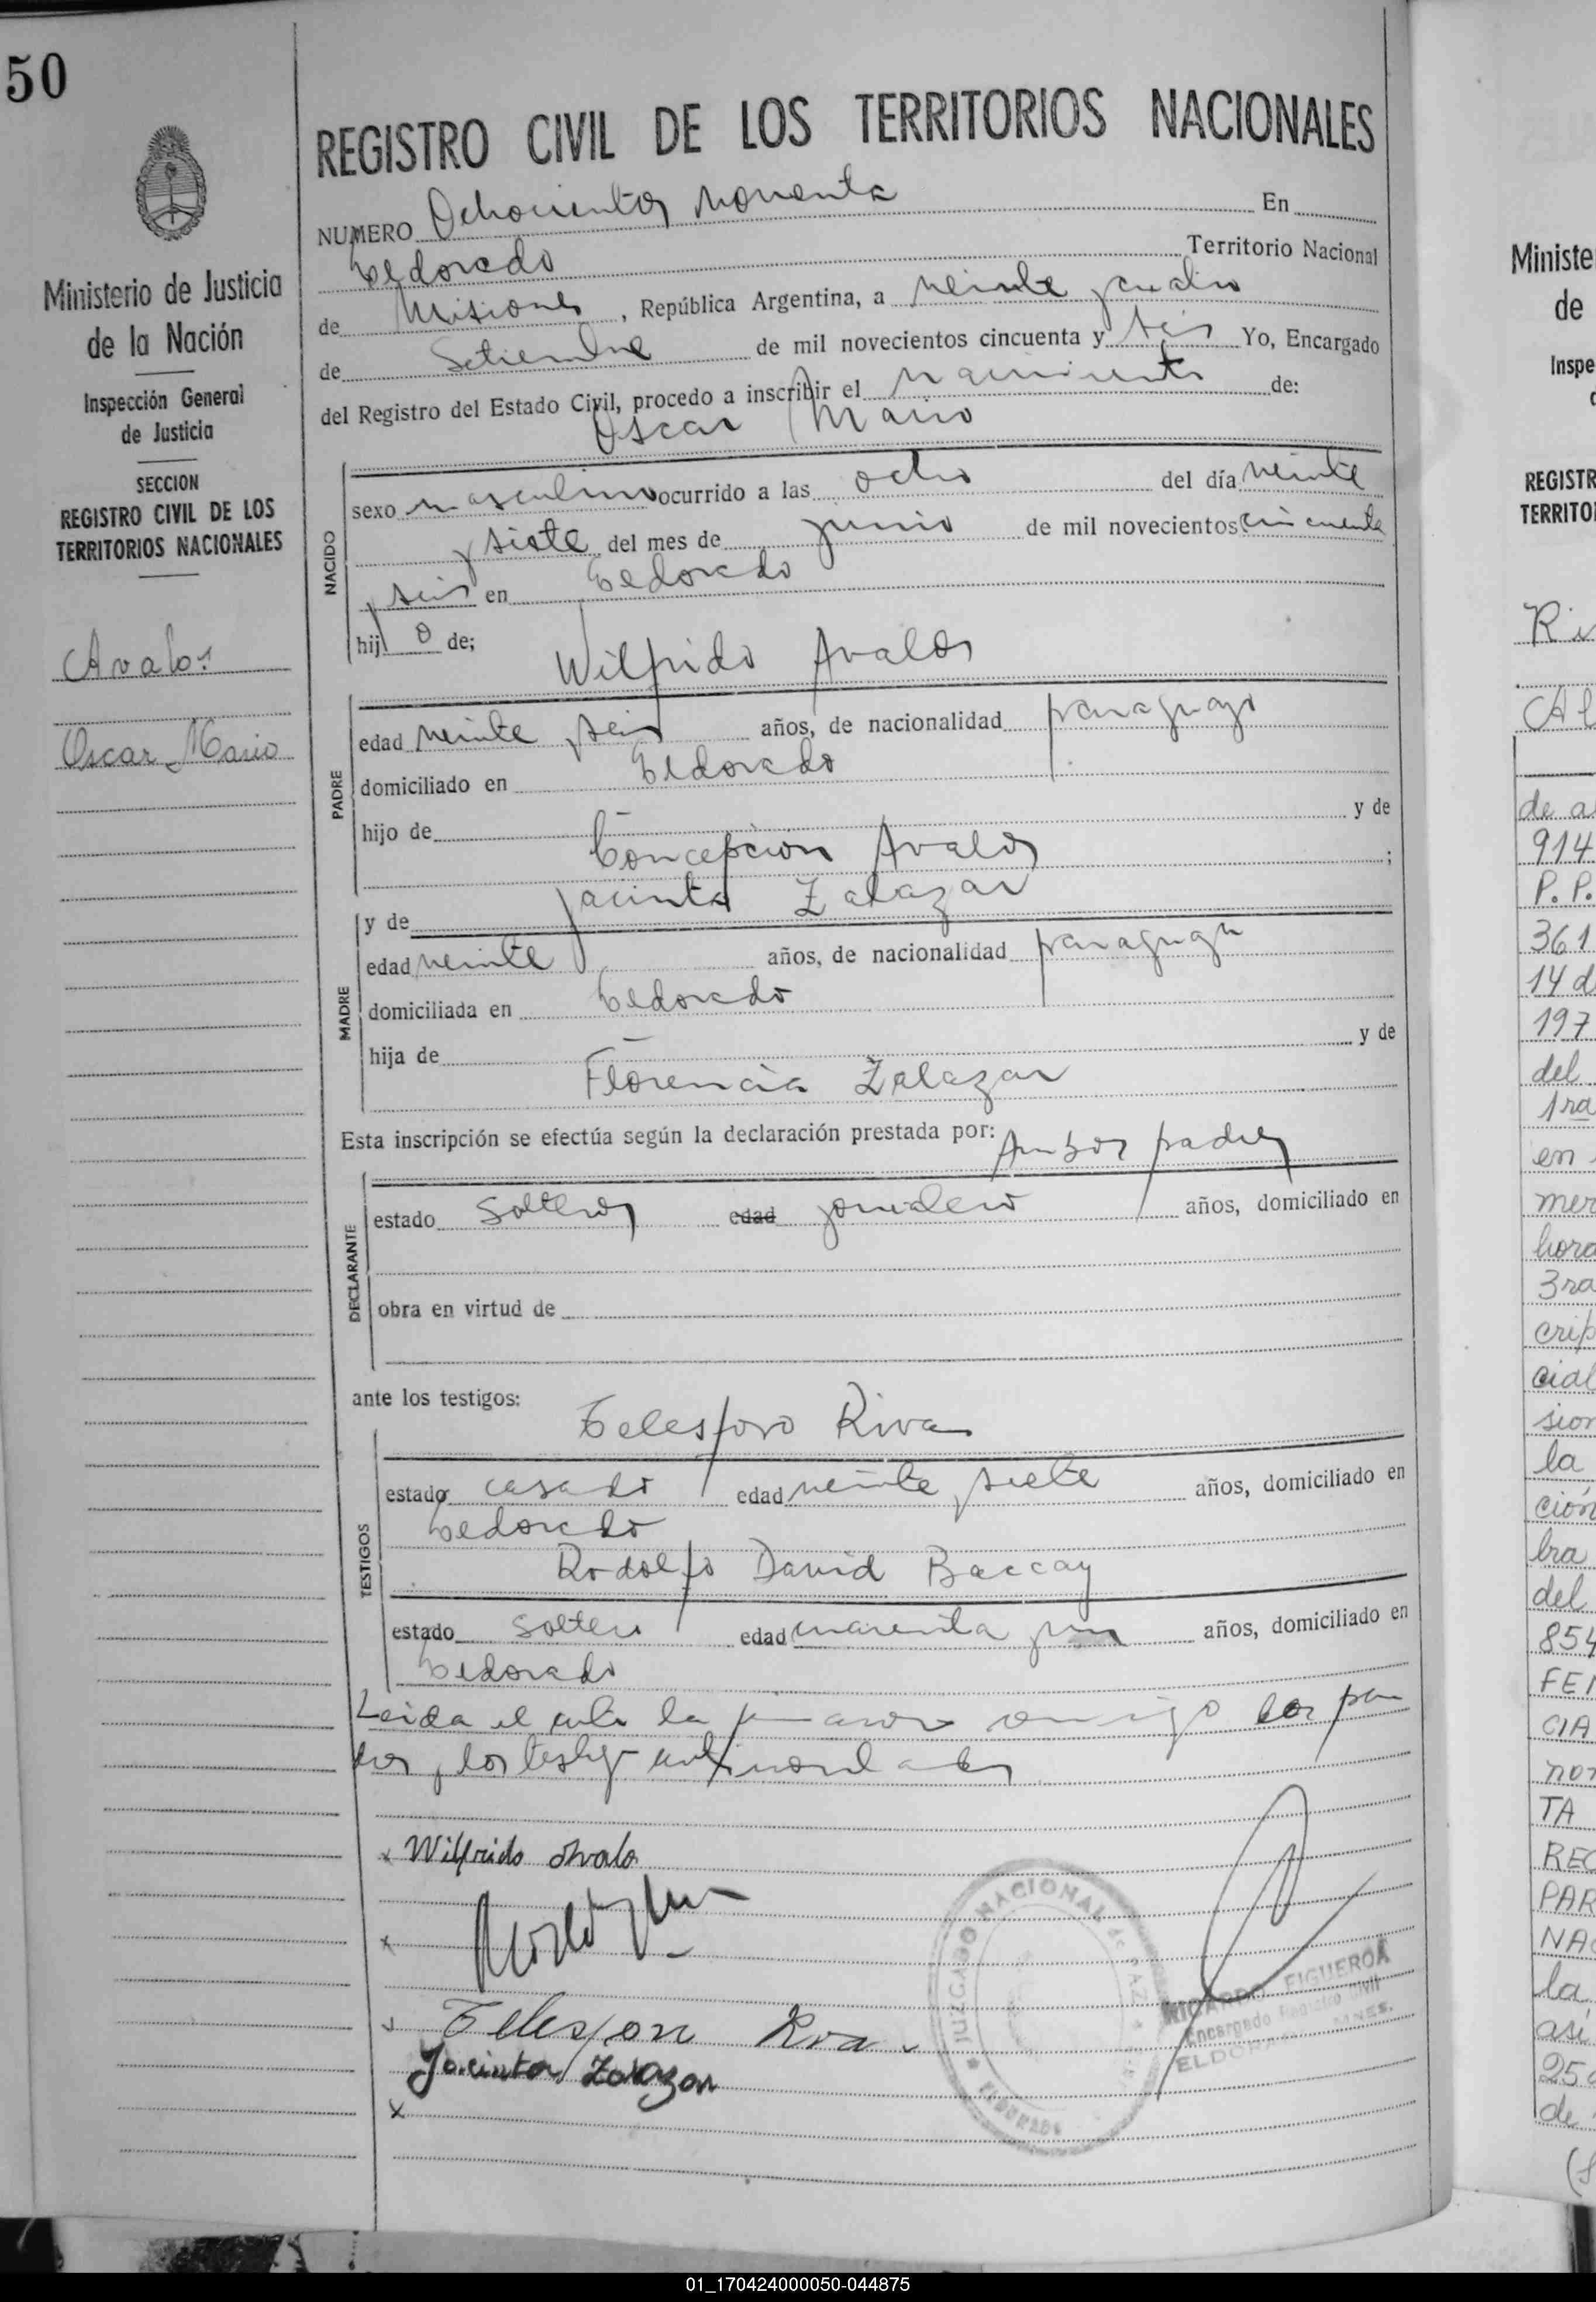 50
Ministerio de Justicia
de la Nación
Inspección General
de Justicia
SECCION
REGISTRO CIVIL DE LOS
TERRITORIOS NACIONALES
Avalos
Oscar Mario
REGISTRO CIVIL DE LOS TERRITORIOS NACIONALES
NUMERO Ochocientos noventa En
Eldorado Territorio Nacional
de Misiones, República Argentina, a veinte y cuatro
de Setiembre de mil novecientos cincuenta y seis Yo, Encargado
del Registro del Estado Civil, procedo a inscribir el nacimiento de:
Oscar Mario
NACIDO
sexo masculino ocurrido a las ocho del día veinte
y siete del mes de junio de mil novecientos cincuenta
y seis en Eldorado
hijo de;
Wilfrido Avalos
PADRE
edad veinte y seis años, de nacionalidad paraguayo
domiciliado en Eldorado
hijo de — y de
Concepción Avalos ;
y de Jacinta Zalazar
MADRE
edad veinte años, de nacionalidad paraguaya
domiciliada en Eldorado
hija de — y de
Florencia Zalazar
Esta inscripción se efectúa según la declaración prestada por: Ambos padres
DECLARANTE
estado Solteros edad jornalero años, domiciliado en
obra en virtud de
ante los testigos:
Telesforo Riva
TESTIGOS
estado casado edad veinte y siete años, domiciliado en
Eldorado
Rodolfo David Baccay
estado soltero edad cuarenta y un años, domiciliado en
Eldorado
Leida el acta la firmaron conmigo los pa
dres y los testigos
x Wilfrido Avalo
x
Telesforo Riva
Jacinta Zalazar
x
JUZGADO NACIONAL DE PAZ
ELDORADO
RICARDO FIGUEROA
Encargado Registro Civil
ELDORADO MNES.
Ministe
de
Inspe
REGISTR
TERRITO
Ri
Al
de a
914
P. P.
361
14 d
197
del
1ra
en
mer
hora
3ra
crip
cial
sion
la
ción
bra
del
854
FE
CIA
nor
TA
REC
PAR
NA
la
así
25
de
01_170424000050-044875